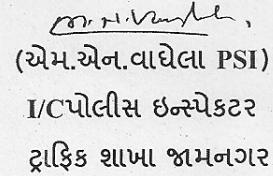 (એમ.એન.વાઘેલા PSI)
I/Cપોલીસ ઇન્સ્પેકટર
ટ્રાફિક શાખા જામનગર